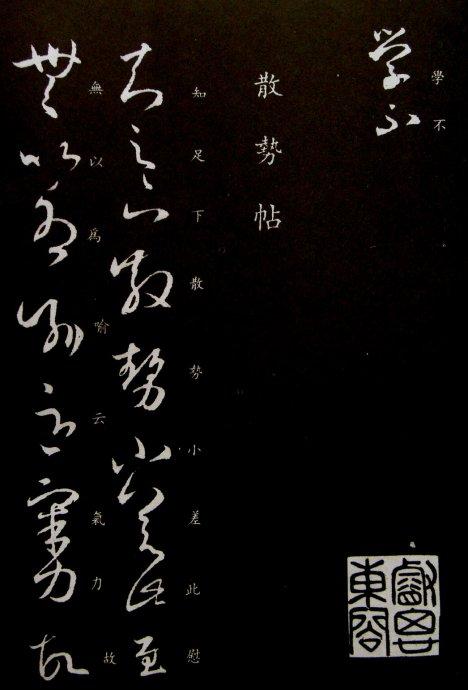 學不
學不
散勢帖
知足下散勢小差此慰
知足下散勢小差此慰
無以爲喻云氣力故
無以爲喻云氣力故